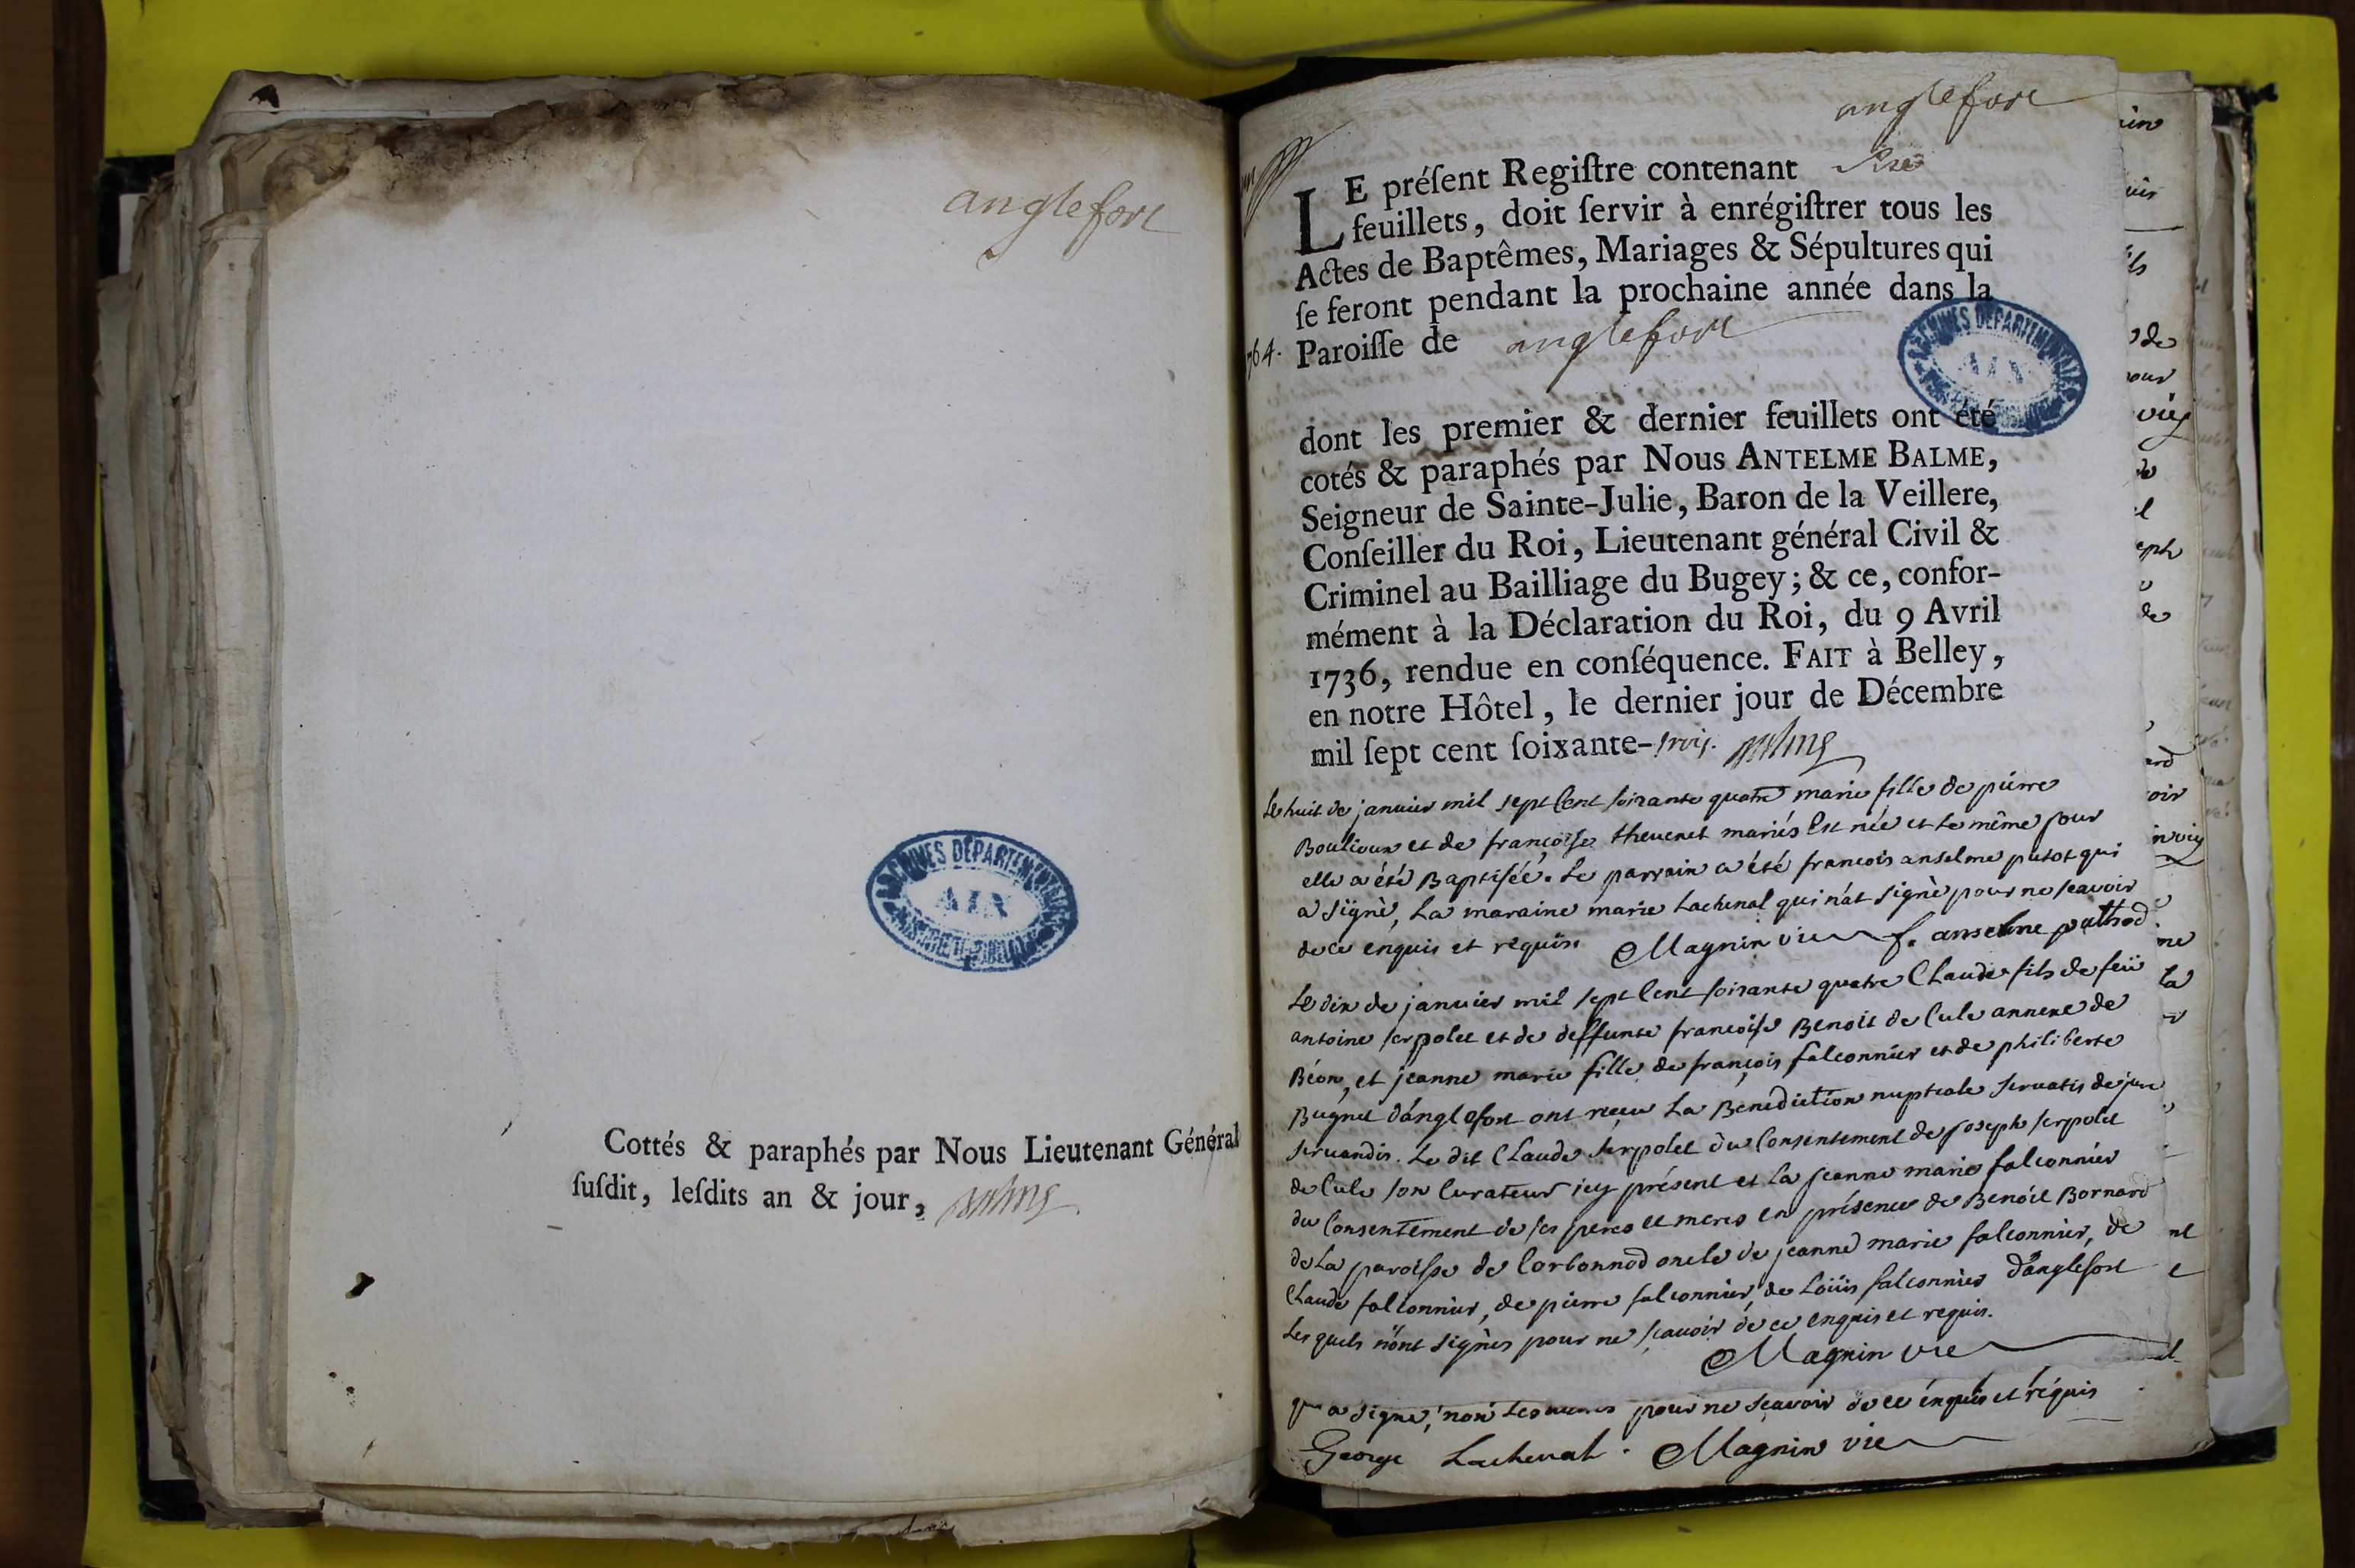 anglefort
Cottés & paraphés par Nous Lieutenant Général
ſuſdit, leſdits an & jour,
ARCHIVES DÉPARTEMENTALES
AIN
anglefort
LE préſent Regiſtre contenant
feuillets, doit ſervir à enrégiſtrer tous les
Actes de Baptêmes, Mariages & Sépultures qui
ſe feront pendant la prochaine année dans la
Paroiſſe de anglefort
764.
ARCHIVES DÉPARTEMENTALES
AIN
dont les premier & dernier feuillets ont été
cotés & paraphés par Nous ANTELME BALME,
Seigneur de Sainte-Julie, Baron de la Veillere,
Conſeiller du Roi, Lieutenant général Civil &
Criminel au Bailliage du Bugey; & ce, confor-
mément à la Déclaration du Roi, du 9 Avril
1736, rendue en conſéquence. FAIT à Belley,
en notre Hôtel, le dernier jour de Décembre
mil ſept cent ſoixante-trois.
Le huit de janvier mil sept cent soixante quatre marie fille de pierre
Boulioux et de françoise thevenet mariés Est née et le même jour
elle a été Baptisée. Le parrain a été francois anselme putot qui
a signè, La maraine marie Lachenal qui n'at signè pour ne scavoir
de ce enquis et requis. Magnin vic f. anselme puthod
Le dix de janvier mil sept cent soixante quatre Claude fils de feü
antoine serpolet et de deffunte francoise Benoit de Cule annexe de
Béon, et jeanne marie fille de françois falconnier et de philiberte
Bugnet d'anglefort ont reçu La Benediction nuptiale servatis de jure
servandis. Le dit Claude serpolet du Consentement de joseph serpolet
de Cule son Curateur icy présent et la jeanne marie falconnier
du Consentement de ses peres et meres en présence de Benoit Bornard
de La paroisse de Corbonnod oncle de jeanne marie falconnier, de
Claude falconnier, de pierre falconnier, de Loüis falconnier d'anglefort
Lesquels n'ont signès pour ne scavoir de ce enquis et requis.
Magnin vic
qui a signe, non Les pour ne scavoir de ce énquis et réquis
George Lachenal. Magnin vic